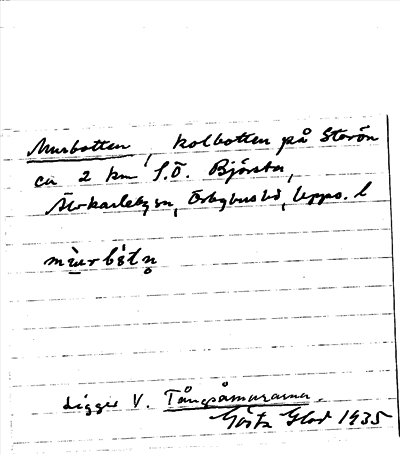 Murbotten, kolbotten på Storön
ca 2 km S.Ö. Björsta,
Älvkarleby sn, Örbyhus hd, Upps. l
mùrbòtn̥
Ligger V. Tångsåmurarna.
Gösta Glad 1935